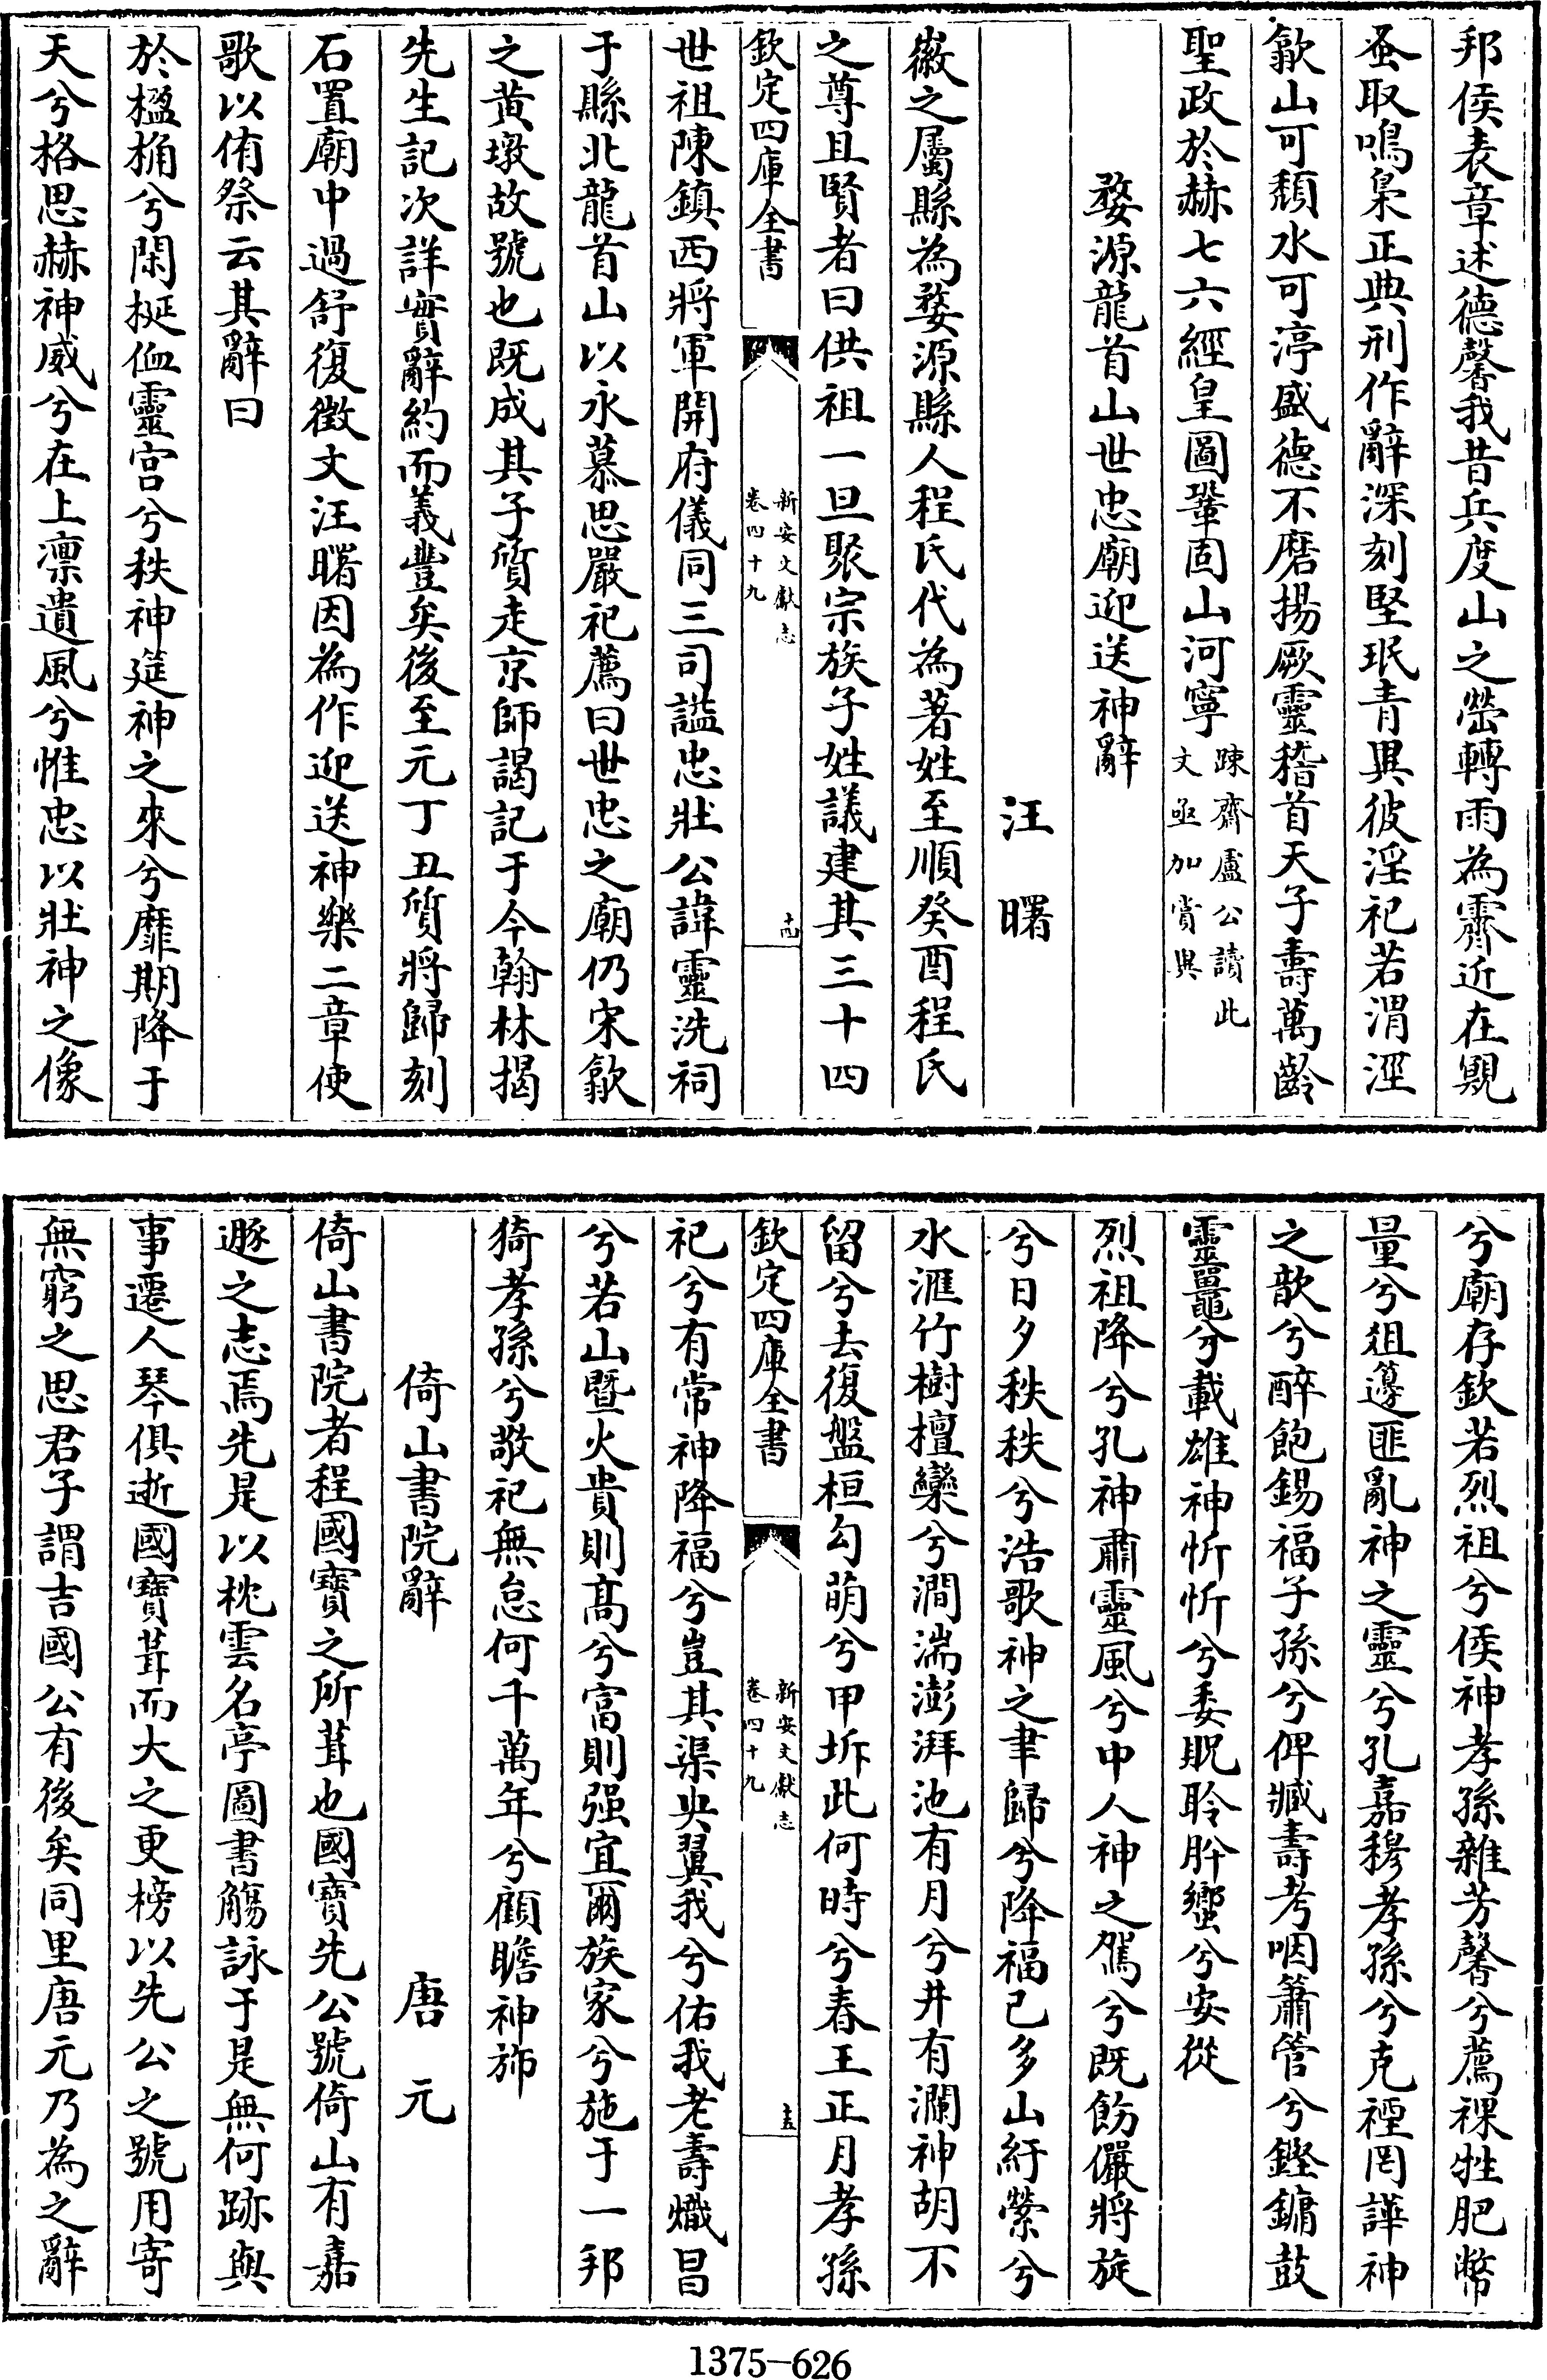 邦侯表章述德馨我昔兵度山之塋轉雨為霽近在覭
蚤取鳴梟正典刑作辭深刻堅珉青異彼淫祀若渭涇
歙山可頽水可渟盛德不磨揚厥靈稽首天子壽萬齡
聖政於赫七六經皇圖鞏固山河寧踈齋盧公讀此文亟加賞異
婺源龍首山世忠廟迎送神辭
汪曙
徽之屬縣為婺源縣人程氏代為著姓至順癸酉程氏
之尊且賢者曰供祖一旦聚宗族子姓議建其三十四
欽定四庫全書
新安文獻志
卷四十九
十四
世祖陳鎮西將軍開府儀同三司諡忠壯公諱靈洗祠
于縣北龍首山以永慕思嚴祀薦曰世忠之廟仍宋歙
之黄墩故號也既成其子質走京師謁記于今翰林揭
先生記次詳實辭約而義豐矣後至元丁丑質將歸刻
石置廟中過舒復徵文汪曙因為作迎送神樂二章使
歌以侑祭云其辭曰
於楹桷兮閑挻侐靈宫兮秩神筵神之來兮靡期降于
天兮格思赫神威兮在上凛遺風兮惟忠以壯神之像
兮廟存欽若烈祖兮侯神孝孫雜芳馨兮薦祼牲肥幣
量兮俎籩匪亂神之靈兮孔嘉穆孝孫兮克禋罔譁神
之歆兮醉飽錫福子孫兮俾臧壽考咽簫管兮鏗鏞鼓
靈鼉兮載雄神忻忻兮委貺聆肸蠁兮安從
烈祖降兮孔神肅靈風兮中人神之駕兮既飭儼將旋
兮日夕秩秩兮浩歌神之聿歸兮降福已多山紆縈兮
水滙竹樹檀欒兮澗湍澎湃池有月兮井有瀾神胡不
留兮去復盤桓勾萌兮甲坼此何時兮春王正月孝孫
欽定四庫全書
新安文獻志
卷四十九
十五
祀兮有常神降福兮豈其渠央翼我兮佑我老壽熾昌
兮若山暨火貴則髙兮富則强宜爾族家兮施于一邦
猗孝孫兮敬祀無怠何千萬年兮顧瞻神斾
倚山書院辭
唐元
倚山書院者程國寶之所葺也國寶先公號倚山有嘉
遯之志焉先是以枕雲名亭圖書觴詠于是無何跡與
事遷人琴俱逝國寶葺而大之更榜以先公之號用寄
無窮之思君子謂吉國公有後矣同里唐元乃為之辭
1375-626